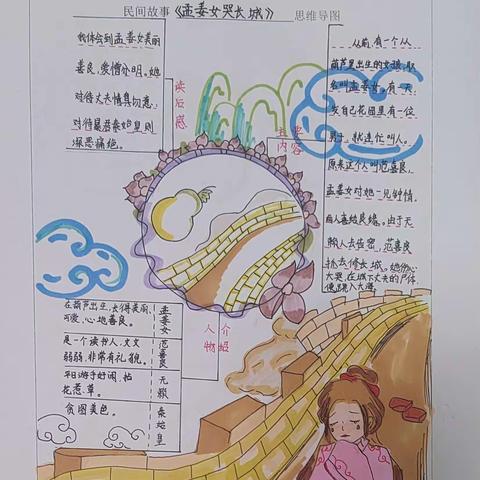 民间故事《孟姜女哭长城》 思维导图
我体会到孟姜女美丽
善良,爱憎分明。她
对待丈夫情真切意,
对待暴君秦始皇则
深恶痛绝。
读后感
主要
内容
从前,有一个从
葫芦里出生的女孩,取
名叫孟姜女。有一天,
发自己花园里有一位
男子,就连忙叫人。
原来这个人叫范喜良,
孟姜女对她一见钟情,
两人喜结良缘。由于无
赖人去告密,范喜良
抓去修长城。她伤心
大哭,在城下丈夫的尸体,
便跳入大海。
人 介
物 绍
在葫芦出生,长得美丽、
可爱,心地善良。
孟姜女
是一个读书人,文文
弱弱,非常有礼貌。
范喜良
平日游手好闲,拈
花惹草。
无赖
贪图美色。
秦始皇